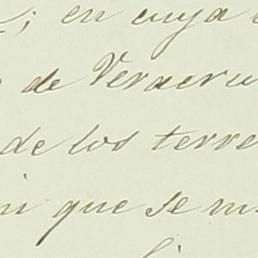 ; en cuya
de Veracru
de los terre
ni que se m